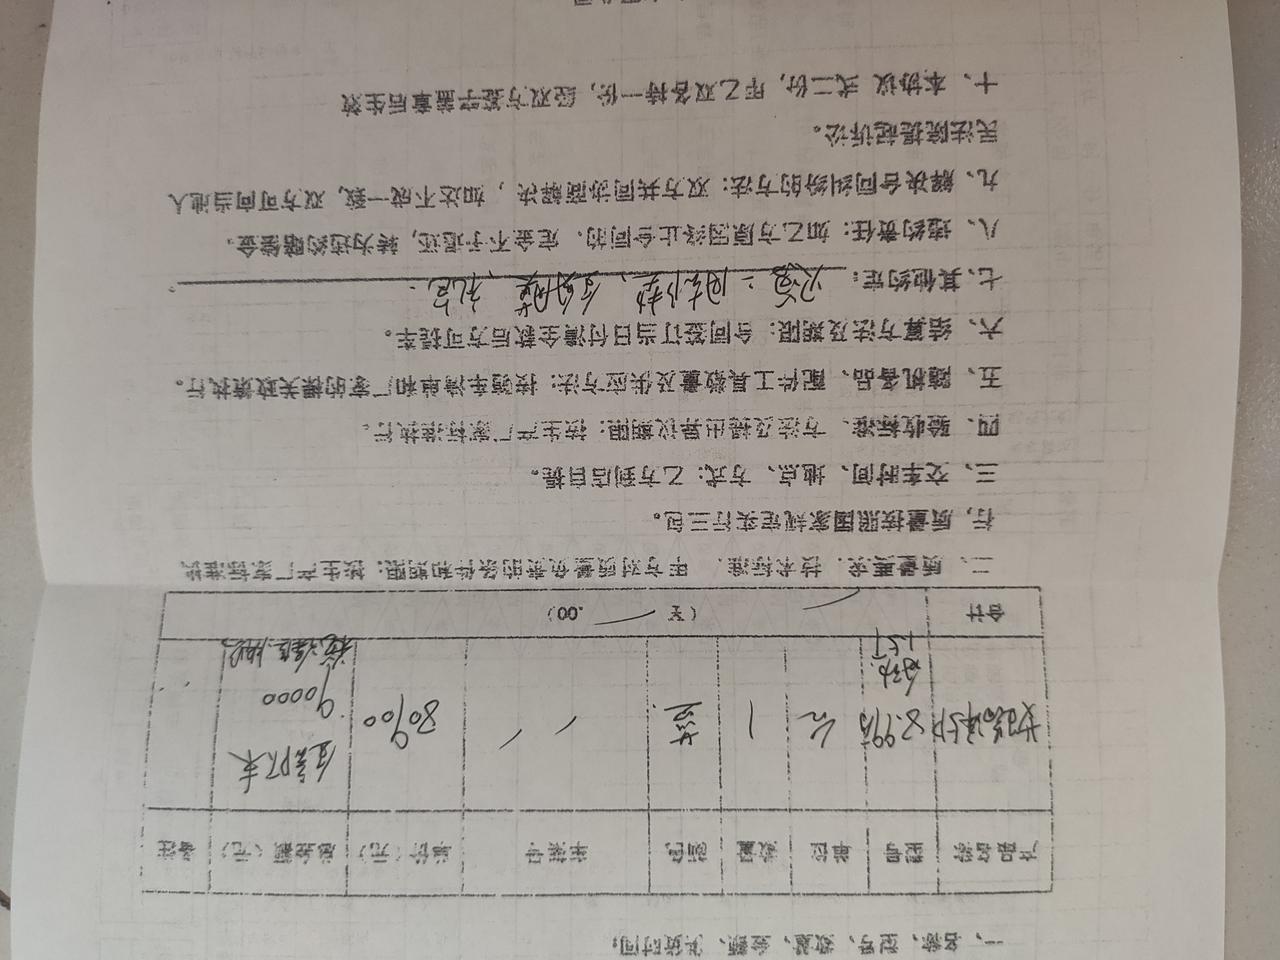 一、名称、型号、数量、金额、供货时间:
产品名称 型号 单位 数量 颜色 车架号 单价(元) 总金额(元) 备注
8.99万 台 1 蓝 / / 80900 全款
90000
自动
1.5T
合计 (¥ .00)
二、质量要求、技术标准、甲方对质量负责的条件和期限:按生产厂家标准执
行,质量按照国家规定实行三包。
三、交车时间、地点、方式:乙方到店自提。
四、验收标准、方法及提出异议期限:按生产厂家标准执行。
五、随机备品、配件工具数量及供应方法:按随车清单和厂家的相关政策执行。
六、结算方法及期限:合同签订当日付清全款后方可提车。
七、其他约定:
八、违约责任:如乙方原因终止合同的、定金不予退还,转为违约赔偿金。
九、解决合同纠纷的方法:双方共同协商解决,如达不成一致,双方可向当地人
民法院提起诉讼。
十、本协议 式二份,甲乙双各持一份,经双方签字盖章后生效